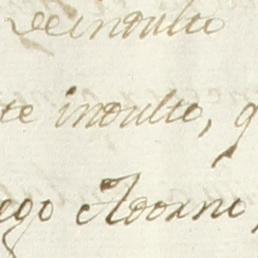 de indulto
te indulto, q
ego Adorno,